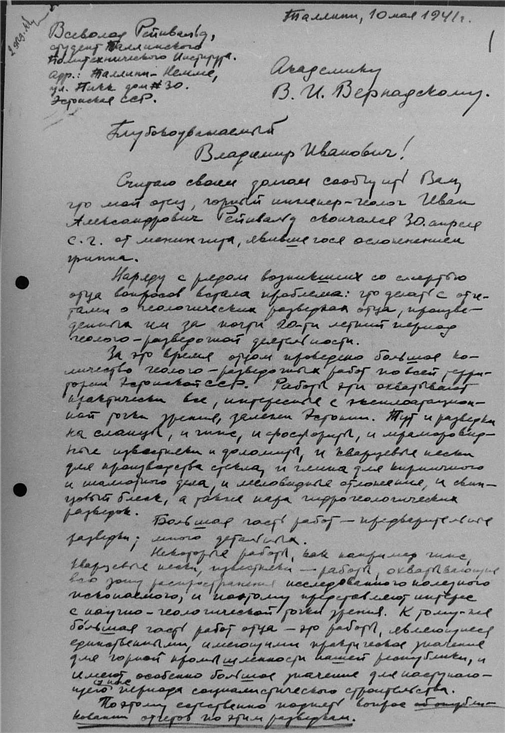 Таллинн, 10 мая 1941 г.
1
Всеволод Рейнвальд,
студент Таллинского
Политехнического Института.
адр: Таллинн-Немме,
ул. Пикк дом #30.
Эстонская ССР.
Академику
В. И. Вернадскому.
Глубокоуважаемый
Владимир Иванович!
Считаю своим долгом сообщить Вам,
что мой отец, горный инженер-геолог Иван
Александрович Рейнвальд скончался 30. апреля
с. г. от менингита, явившегося осложнением
гриппа.
Наряду с рядом возникших со смертью
отца вопросов встала проблема: что делать с отче-
тами о геологических разведках отца, произве-
денных им за почти 20-ти летний период
геолого-разведочной деятельности.
За это время отцом проведено большое ко-
личество геолого-разведочных работ по всей терри-
тории Эстонской ССР. Работы эти охватывают
практически все, интересные с эксплоатацион-
ной точки зрения, залежи Эстонии. Тут и разведки
на сланцы, и гипс, и фосфориты, и мраморовид-
ные известняки и доломиты, и кварцевые пески
для производства стекла, и глина для кирпичного
и шамотного дела, и меловидные отложения, и свин-
цовый блеск, а также ряда гидрогеологических
разведок.
Большая часть работ — предварительные
разведки; много детальных.
Некоторые работы, как например гипс,
кварцевые пески, известняки — работы, охватывающие
всю зону распространения исследованного полезного
ископаемого, и поэтому представляют интерес
с научно-геологической точки зрения. К тому-же
большая часть работ отца — это работы, являющиеся
единственными, имеющими практическое значение
для горной промышленности нашей республики, и
имеют особенно большое значение для наступаю-
щего у нас периода социалистического строительства.
Поэтому естественно поднять вопрос об опубли-
ковании отчетов по этим разведкам.